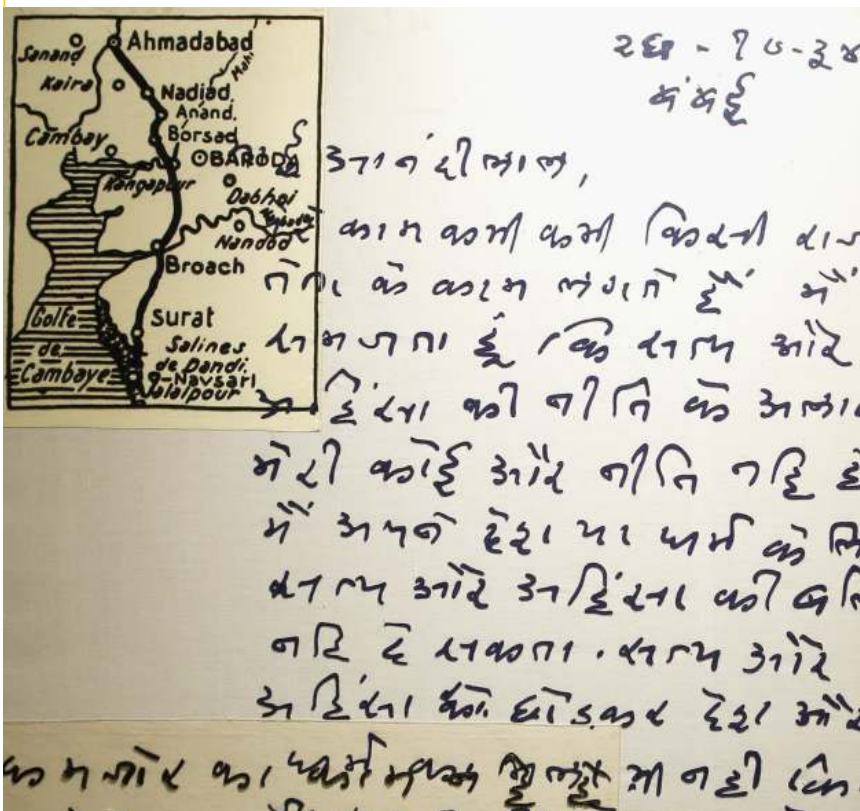 Ahmadabad
Sanand
Kaira
Nadiad
Anand.
Cambay
Borsad
BARODA
Kangapour
Mahi
Dabhoi
Nandod
Broach
Surat
Golfe
de
Cambaye
Salines
de Dandi.
Navsari
Jalalpour
बंबई
आनंदीलाल,
काम कभी कभी किसी
के काम लगते हैं में
समजता हुं कि सत्य और
अहिंसा की नीति के
मेरी कोई और नीति नहि
में अपने देश या धर्म के
सत्य और अहिंसा की
नहि दे सकता. सत्य और
अहिंसा को छोडकर देश और
का भी नहीं